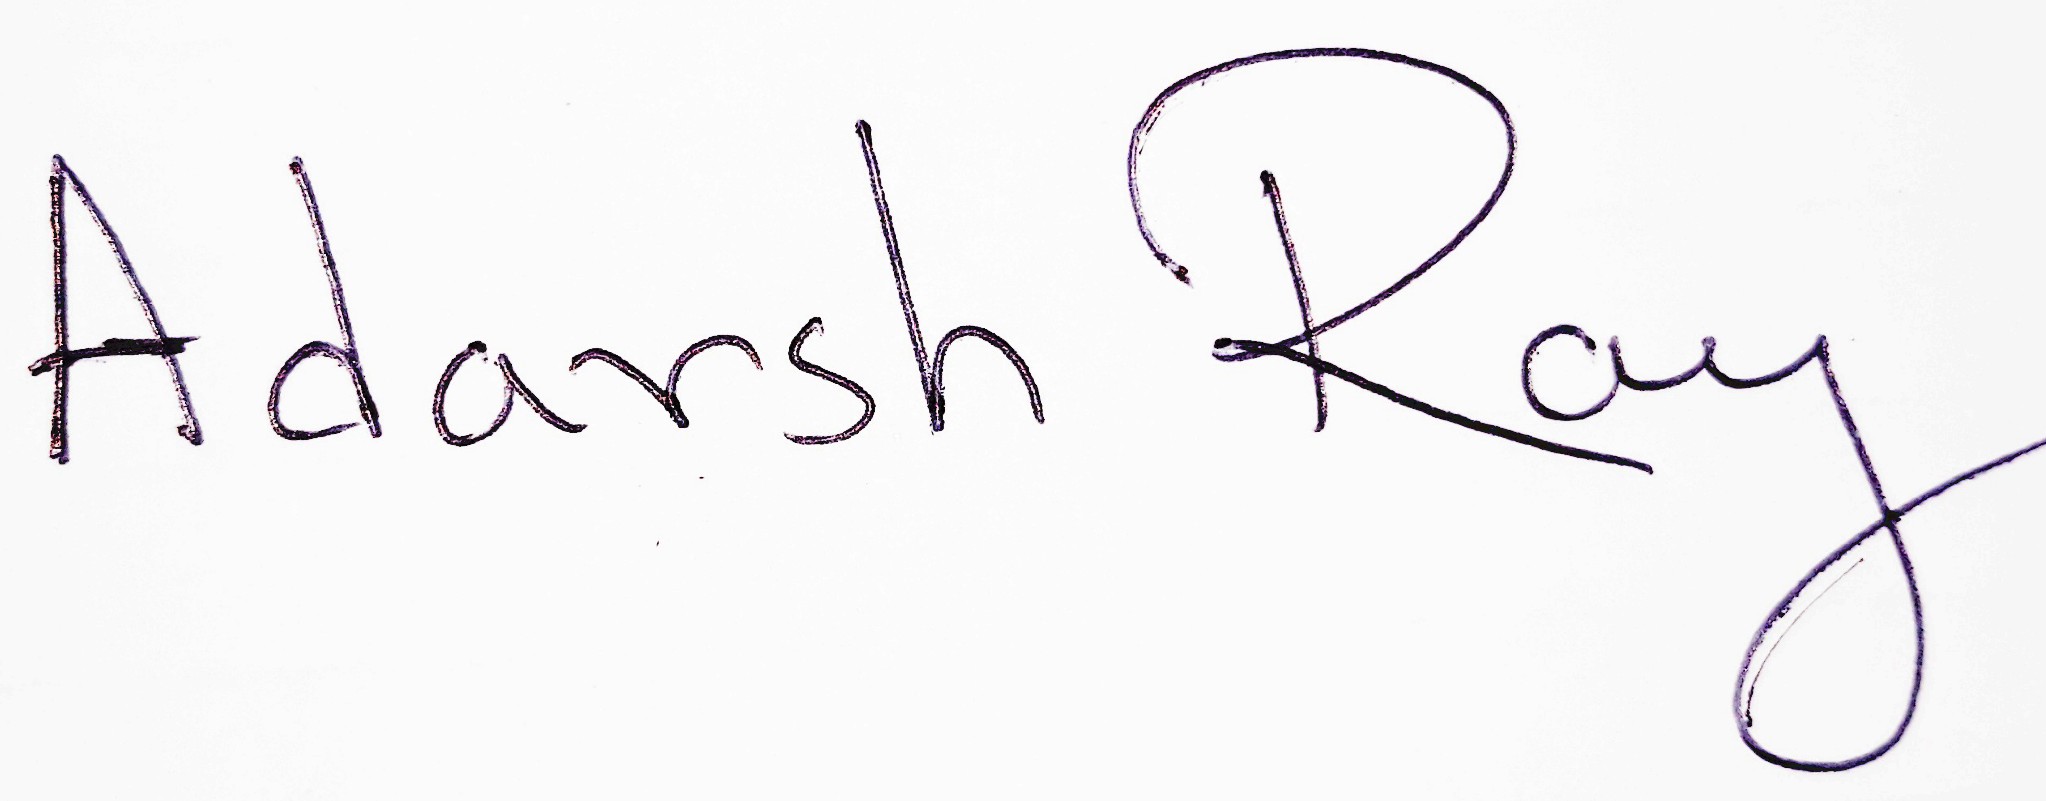 Adarsh Ray